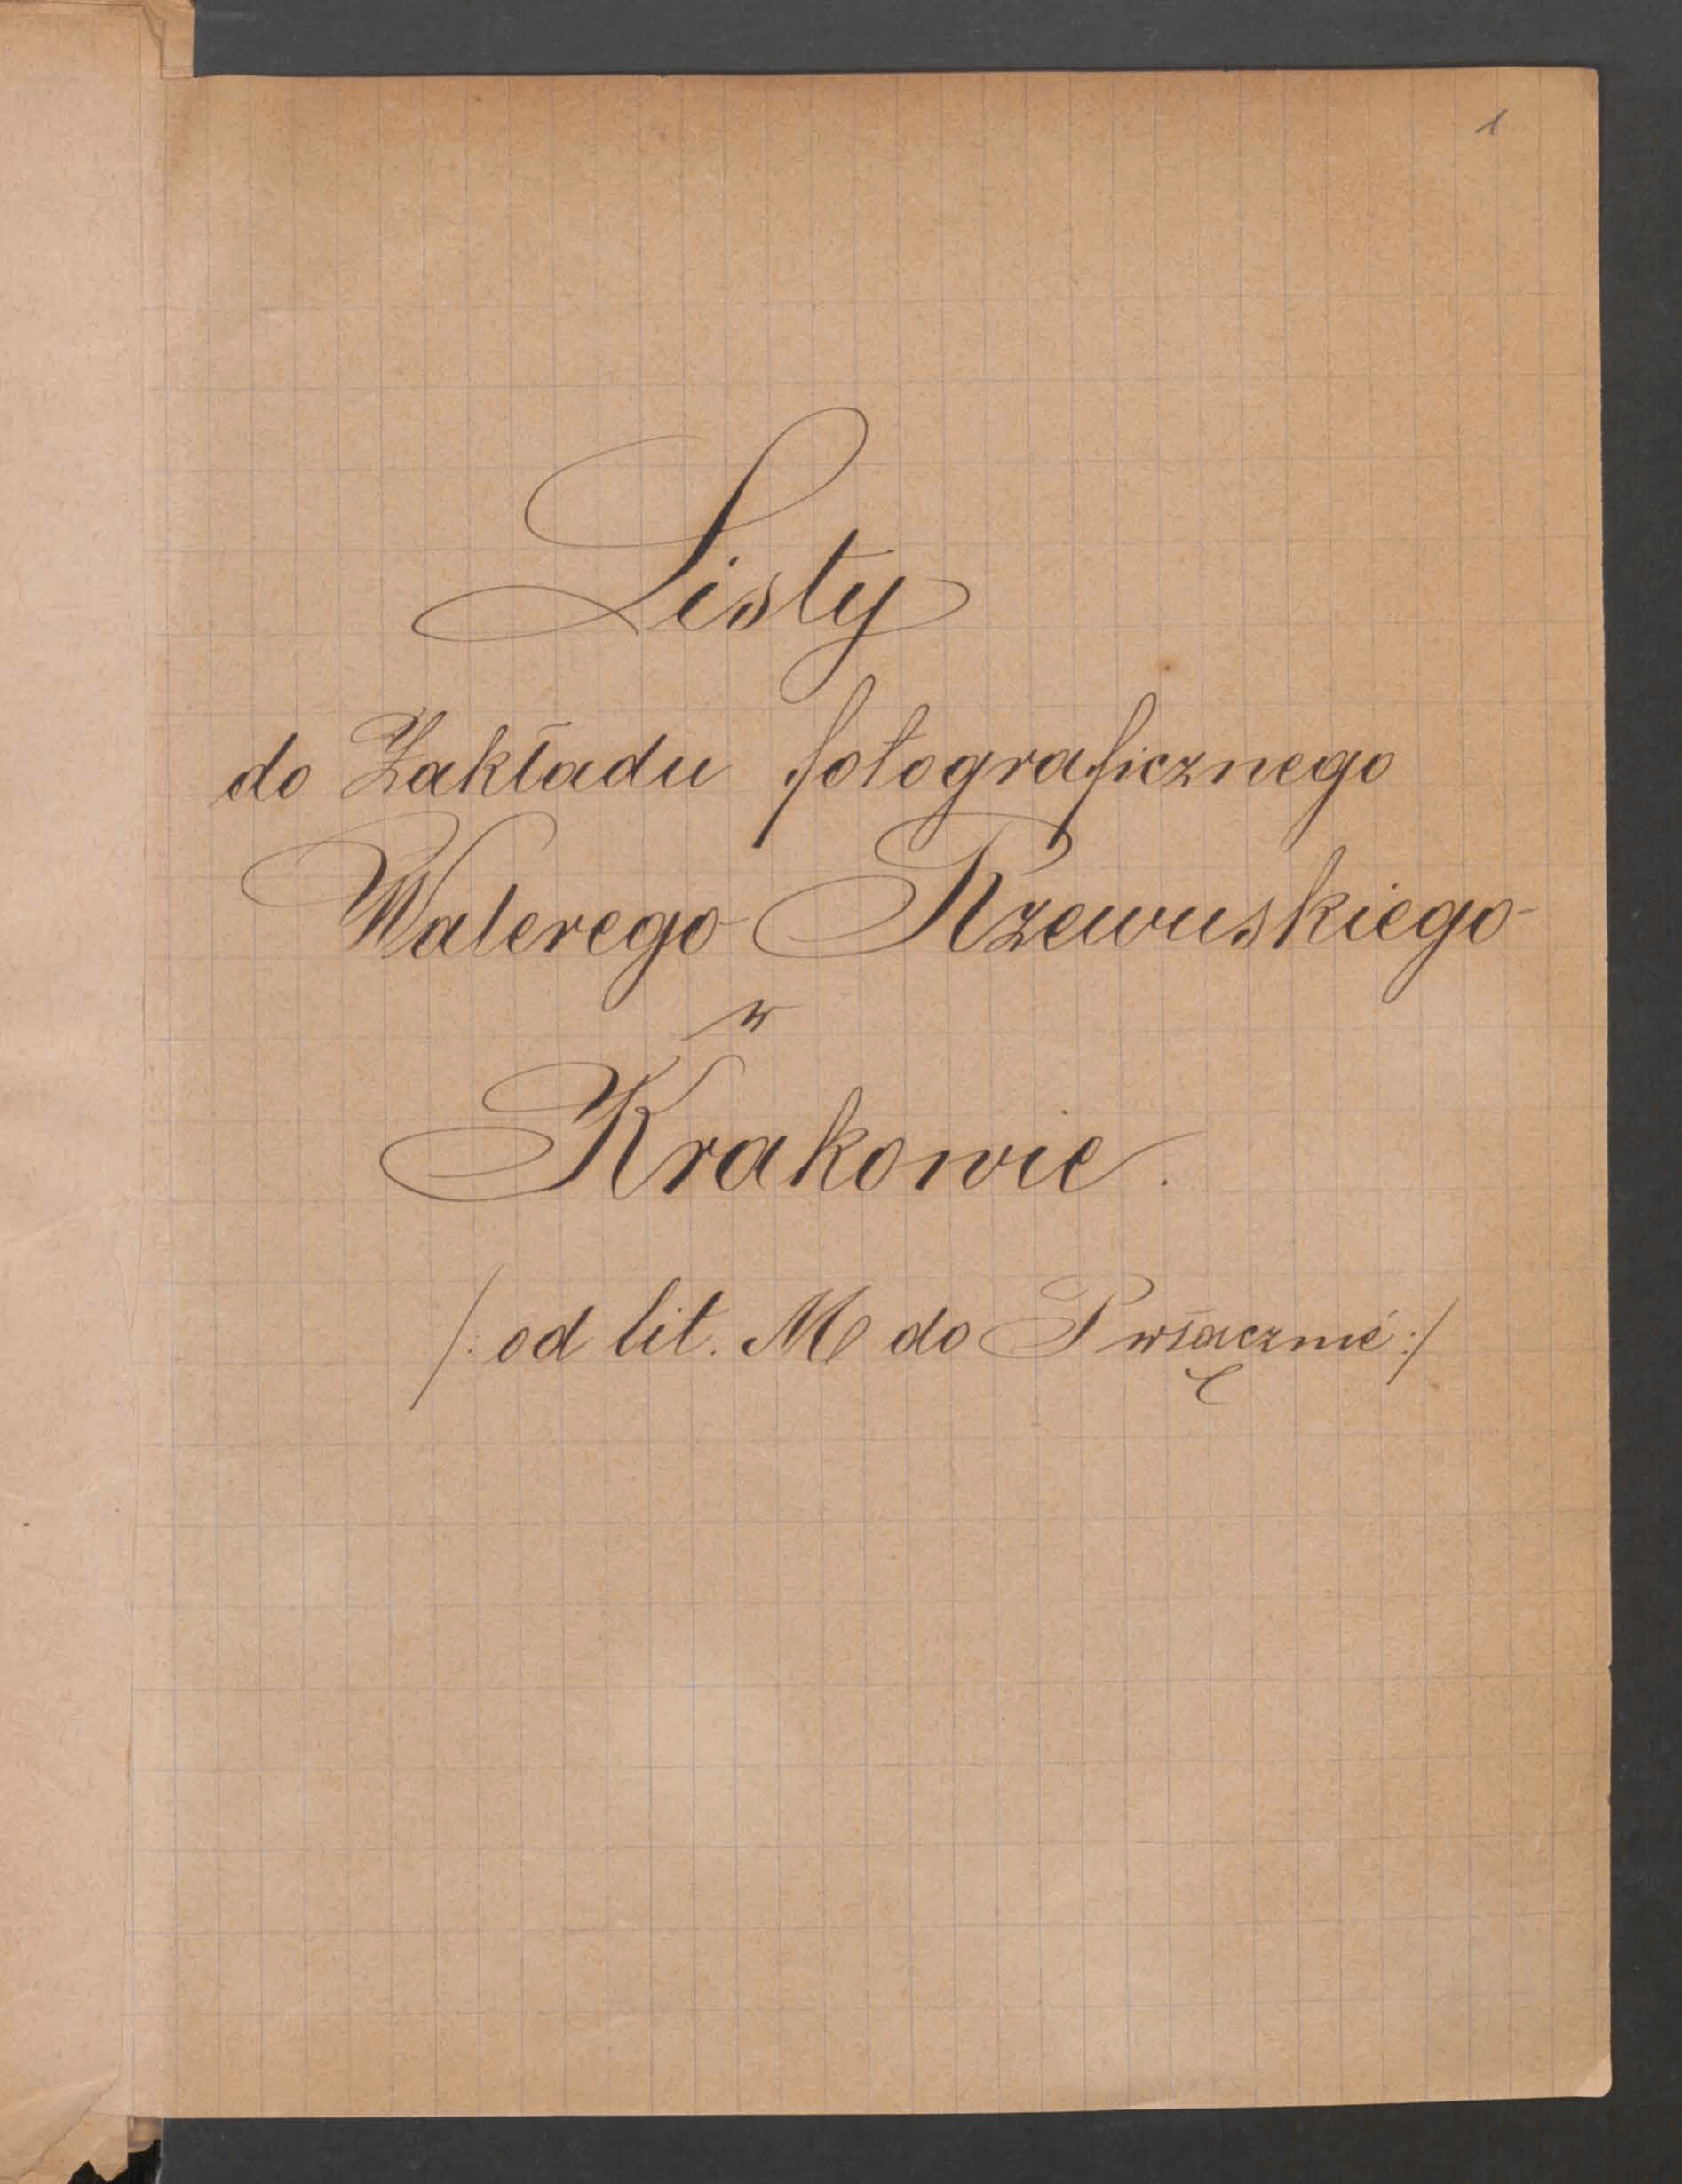 1
Listy
do Zakładu fotograficznego
Walerego Rzewuskiego
w
Krakowie.
/: od lit. M do P włącznie :/